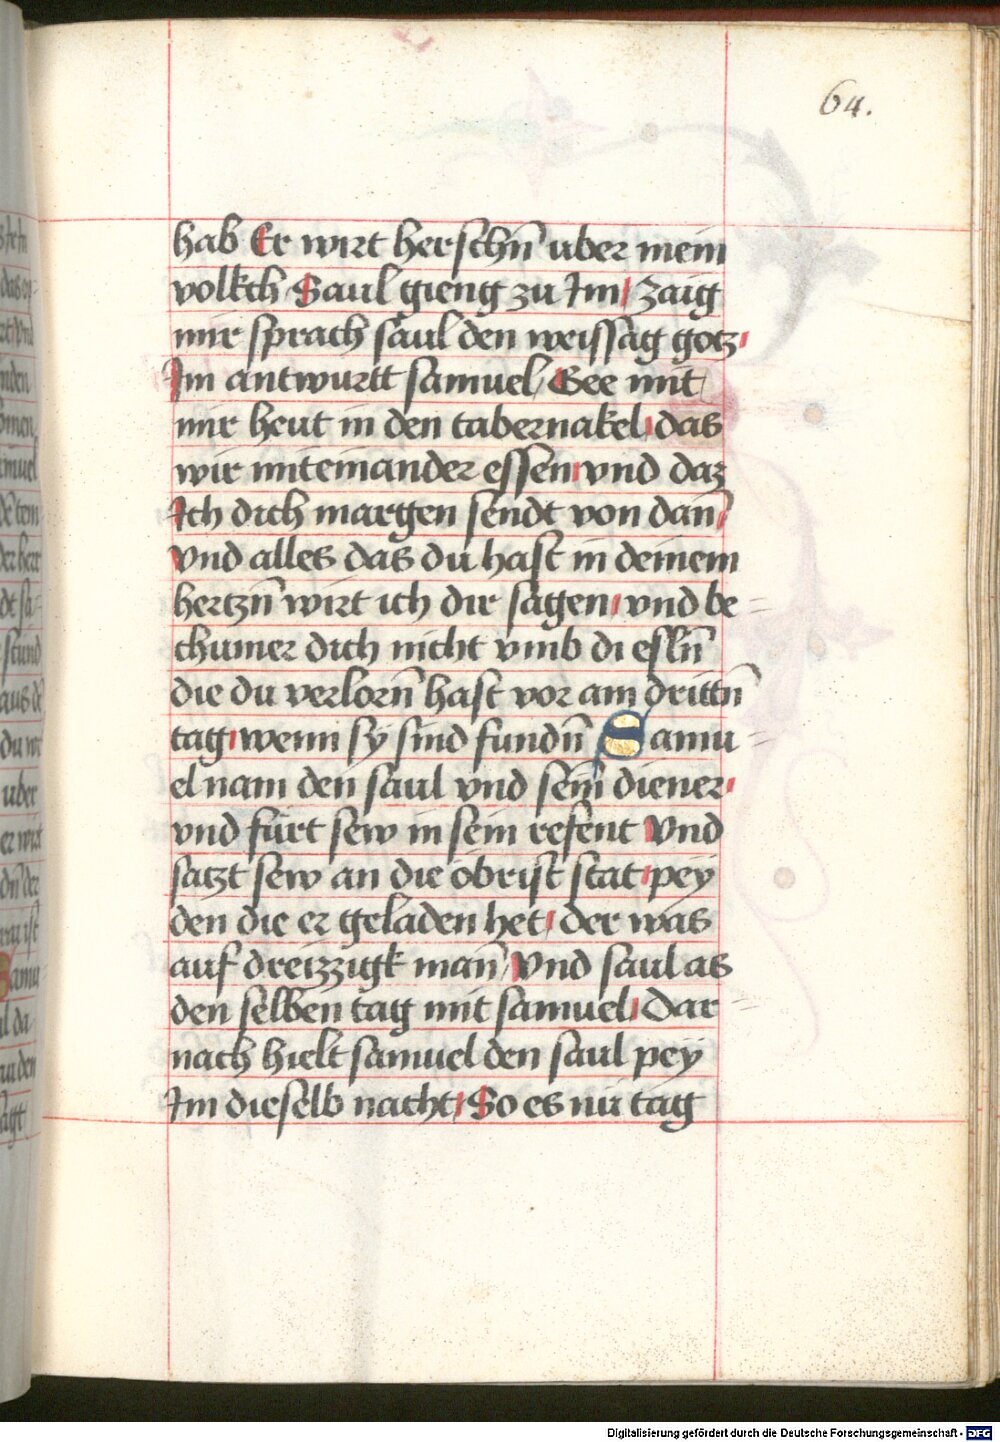 64.
hab Er wirt herschn̄ uber mein
volkch Saul gieng zu Im / Zaig
mir sprach saul den weissag gotz /
Im antwurtt samuel / Gee mit
mir heut in den tabernakel / das
wir miteinander essen / vnd daz
Ich dich margen sendt von dan̄ /
vnd alles das du hast in deinem
hertzn̄ wirt ich dir sagen / vnd be =
chumer dich nicht vmb di esln̄
die du verlorn̄ hast vor am drittn̄
tag / wenn sy sind fundn̄ Samu =
el nam den saul vnd sein diener /
vnd fürt sew in sein refent Vnd
satzt sew an die obrist stat / pey
den die er geladen het / der was
auf dreizzigk man̄ / Vnd saul as
den selben tag mit samuel / Dar =
nach hielt samuel den saul pey
Im dieselb nacht / So es nū tag
Digitalisierung gefördert durch die Deutsche Forschungsgemeinschaft - DFG